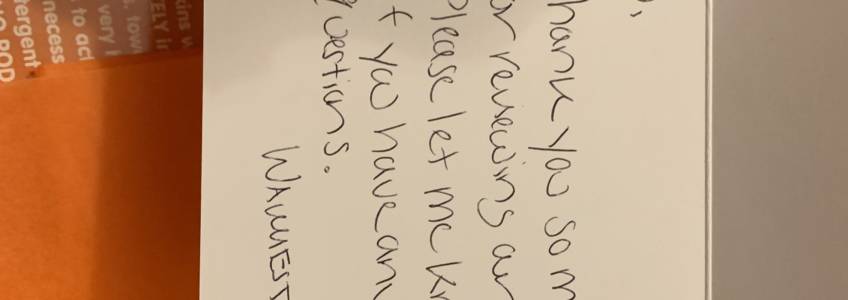 ,
hank you so m
or reviewing an
Please let me kn
f you have any
questions.
WARMEST
ins w
ELY i
tow
very
to acl
necess
ergent
O ROD